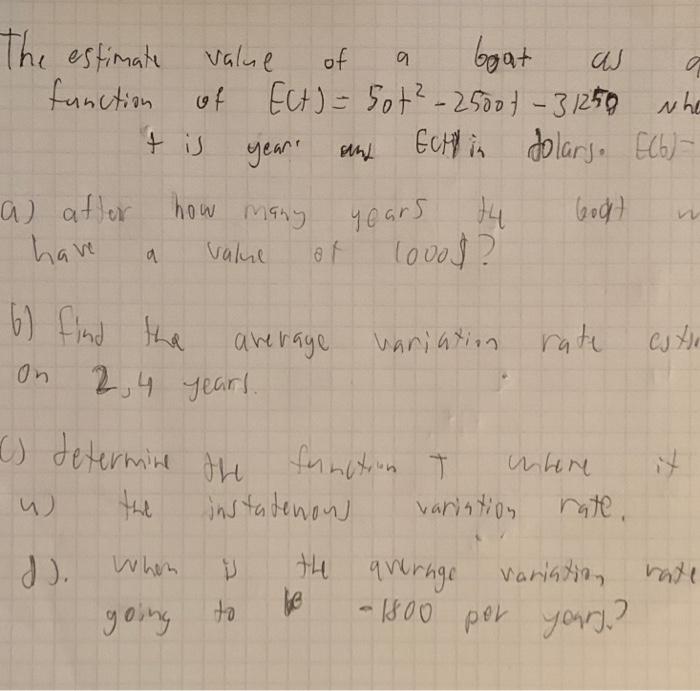 The estimate value of a boat as a
function of E(t) = 50t² - 2500t - 31250 whe
t is year and E(t) in dolars. E(6)=
a) after how many years the boat w
have a value of 1000$?
b) find the average variation rate
on 2,4 years.
c) determine the function T where it
the instatenous variation rate.
d). when is the average variation rate
going to be -1800 per years?